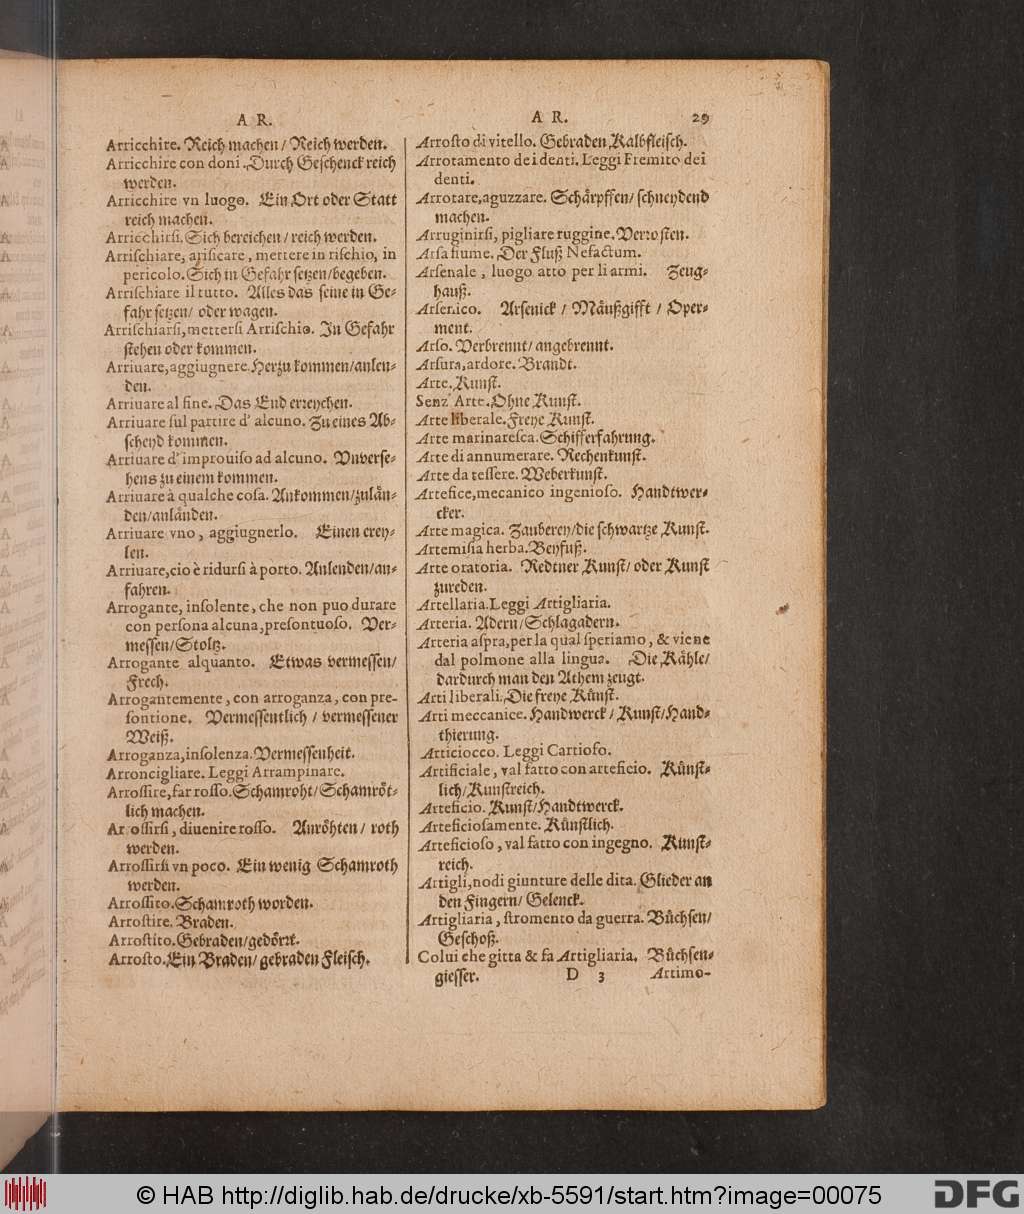 A R.
Arricchire. Reich machen/ Reich werden.
Arricchire con doni. Durch Geschenck reich
werden.
Arricchire vn luogo. Ein Ort oder Statt
reich machen.
Arricchirsi. Sich bereichen/ reich werden.
Arrischiare, arisicare, mettere in rischio, in
pericolo. Sich in Gefahr setzen/begeben.
Arrischiare il tutto. Alles das seine in Ge-
fahr setzen/ oder wagen.
Arrischiarsi, mettersi Arrischio. In Gefahr
stehen oder kommen.
Arriuare, aggiugnere. Herzu kommen/anlen-
den.
Arriuare al fine. Das End erreychen.
Arriuare sul partire d' alcuno. Zu eines Ab-
scheyd kommen.
Arriuare d' improuiso ad alcuno. Vnverse-
hens zu einem kommen.
Arriuare à qualche cosa. Ankommen/zulån-
den/anlånden.
Arriuare vno, aggiugnerlo. Einen erey-
len.
Arriuare, cio è ridursi à porto. Anlenden/an-
fahren.
Arrogante, insolente, che non puo durare
con persona alcuna, presontuoso. Ver-
messen/Stoltz.
Arrogante alquanto. Etwas vermessen/
Frech.
Arrogantemente, con arroganza, con pre-
sontione. Vermessentlich / vermessener
Weiß.
Arroganza, insolenza. Vermessenheit.
Arroncigliare. Leggi Arrampinare.
Arrossire, far rosso. Schamroht/Schamröt-
lich machen.
Arrossirsi, diuenire rosso. Anröhten/ roth
werden.
Arrossirsi vn poco. Ein wenig Schamroth
werden.
Arrossito. Schamroth worden.
Arrostire. Braden.
Arrostito. Gebraden/gedörrt.
Arrosto. Ein Braden/ gebraden Fleisch.
A R. 29
Arrosto di vitello. Gebraden Kalbfleisch.
Arrotamento dei denti. Leggi Fremito dei
denti.
Arrotare, aguzzare. Schårpffen/ schneydend
machen.
Arruginirsi, pigliare ruggine. Verrosten.
Arsa fiume. Der Fluß Nefactum.
Arsenale, luogo atto per li armi. Zeug-
hauß.
Arsenico. Arsenick / Måußgifft / Oper-
ment.
Arso. Verbrennt/ angebrennt.
Arsura, ardore. Brandt.
Arte. Kunst.
Senz' Arte. Ohne Kunst.
Arte liberale. Freye Kunst.
Arte marinaresca. Schifferfahrung.
Arte di annumerare. Rechenkunst.
Arte da tessere. Weberkunst.
Artefice, mecanico ingenioso. Handtwer-
cker.
Arte magica. Zauberey/die schwartze Kunst.
Artemisia herba. Beyfuß.
Arte oratoria. Redtner Kunst/ oder Kunst
zureden.
Artellaria. Leggi Artigliaria.
Arteria. Adern/Schlagadern.
Arteria aspra, per la qual speriamo, & viene
dal polmone alla lingua. Die Kåhle/
dardurch man den Athem zeugt.
Arti liberali. Die freye Kůnst.
Arti meccanice. Handwerck / Kunst/Hand-
thierung.
Articiocco. Leggi Cartiofo.
Artificiale, val fatto con arteficio. Kůnst-
lich/Kunstreich.
Arteficio. Kunst/Handtwerck.
Arteficiosamente. Kůnstlich.
Arteficioso, val fatto con ingegno. Kunst-
reich.
Artigli, nodi giunture delle dita. Glieder an
den Fingern/ Gelenck.
Artigliaria, stromento da guerra. Bůchsen/
Geschoß.
Colui che gitta & fa Artigliaria. Bůchsen-
giesser. D 3 Artimo-
© HAB http://diglib.hab.de/drucke/xb-5591/start.htm?image=00075
DFG